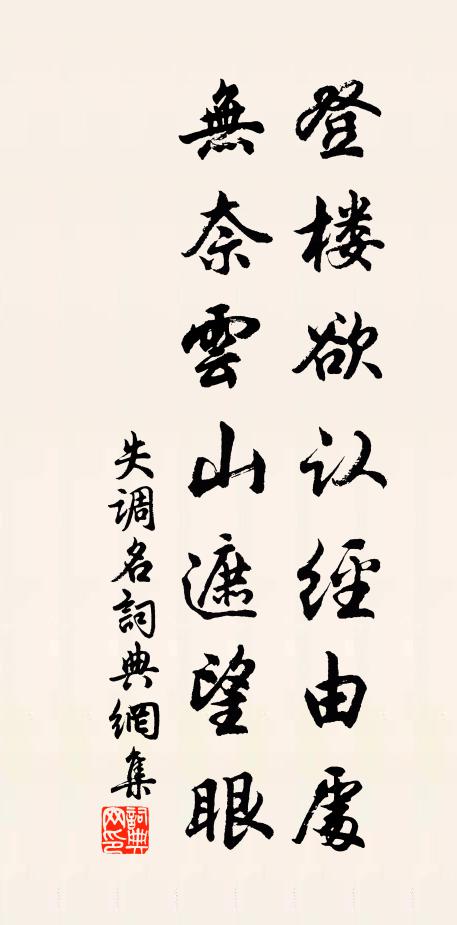 登楼欲认經由處
無奈雲山遮望眼
失调名詞典網集
詞典網印